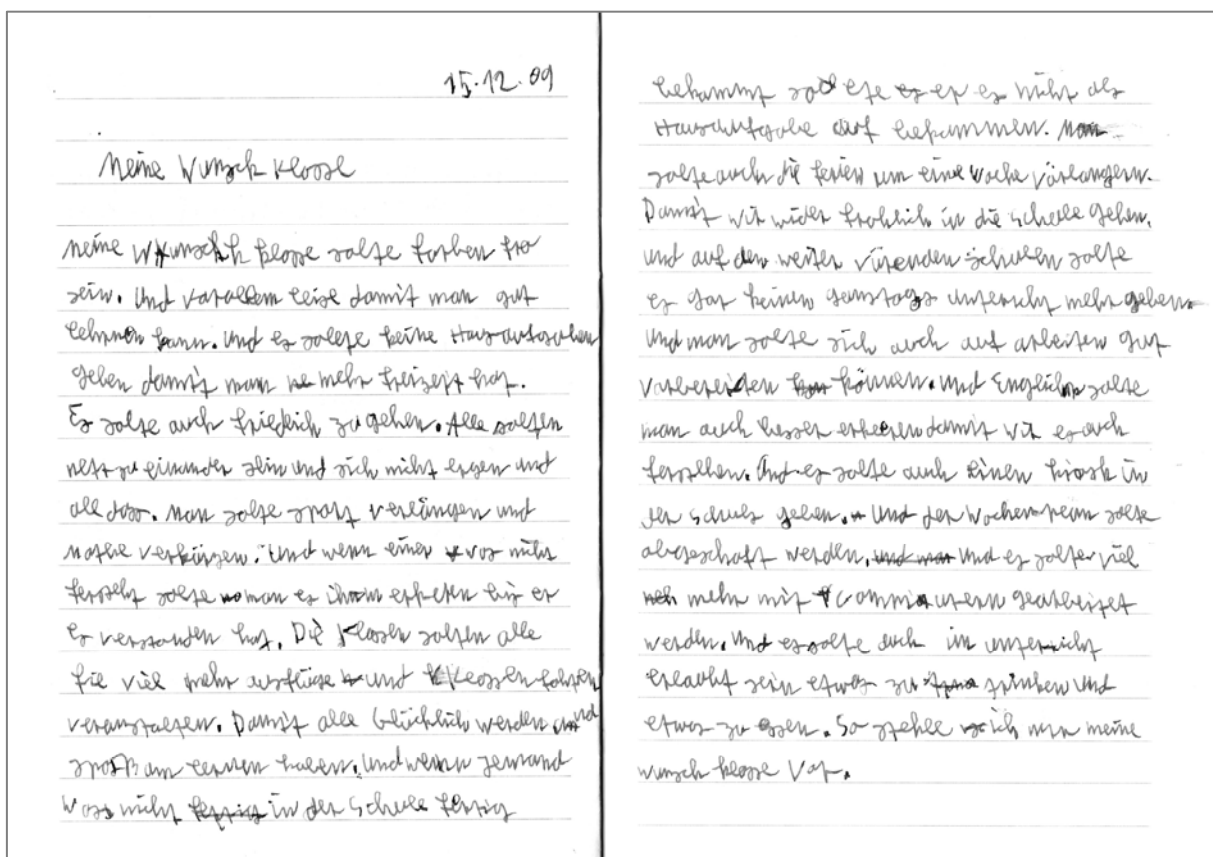 15.12.09
Meine Wunsch Klasse
meine Wunsch klasse solte farben fro
sein. Und vorallem leise damit man gut
lehrnen kann. Und es sollte keine Hausaufgaben
geben damit man mehr freizeit hat.
Es solte auch friedlich zu gehen. Alle solten
nett zu einander sein und sich nicht ergern und
all das. Man solte sport verlängen und
mathe verkürzen. Und wenn einer was nicht
fersteht solte man es ihm erkleren bis er
es verstanden hat. Die Klassen solten alle
fie viel mehr ausflüge und Klassenfahrten
veranstalten. Damit alle Glücklich werden und
spaß am lernen haben. Und wenn jemand
was nicht in der schule fertig
bekommt sollte er es nicht als
Hausaufgabe auf bekommen. Man
solte auch die ferien um eine woche värlangern.
Damit wir wider frohlich in die schule gehen.
und auf den weiter fürenden schulen solte
es gar keinen samstags unterricht mehr geben.
Und man solte sich auch auf arbeiten gut
vorbereiten können. Und Englich solte
man auch besser erkleren damit wir es auch
ferstehen. Und es solte auch einen kiosk in
der schule geben. Und der Wochenplan solte
abgeschaft werden. und es solte viel
mehr mit Computern gearbeitet
werden. Und es solte auch im unterricht
erlaubt sein etwas zu trinken und
etwas zu essen. So stelle ich mir meine
wunsch klasse vor.